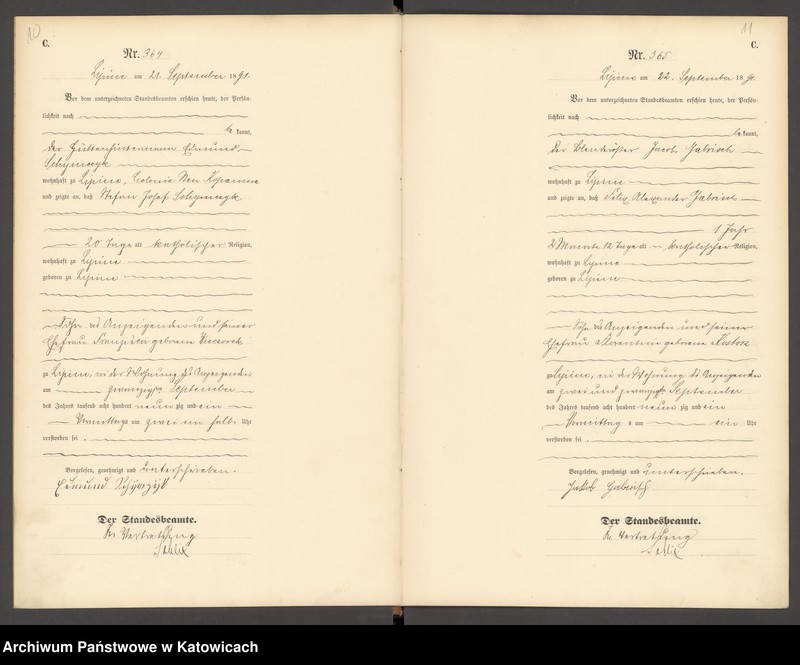 10
C.
Nr. 364
Lipine am 21. September 1891.
Vor dem unterzeichneten Standesbeamten erschien heute, der Persön-
lichkeit nach
be kannt,
der Edmund
wohnhaft zu Lipine, Colonie Neu
und zeigte an, daß Stefan Josef
20 Tage alt katholischer Religion,
wohnhaft zu Lipine
geboren zu Lipine
Sohn des Anzeigenden und seiner
Ehefrau geborene
zu Lipine, in der Wohnung des Anzeigenden
am September
des Jahres tausend acht hundert neun zig und ein
Vormittags um zwei ein halb Uhr
verstorben sei
Vorgelesen, genehmigt und unterschrieben.
Edmund
Der Standesbeamte.
In Vertretung
11
C.
Nr. 365
Lipine am 22. September 1891.
Vor dem unterzeichneten Standesbeamten erschien heute, der Persön-
lichkeit nach
be kannt,
der Jacob Gabrisch
wohnhaft zu Lipine
und zeigte an, daß Felix Alexander Gabrisch
1 Jahr
2 Monate 12 Tage alt katholischer Religion,
wohnhaft zu Lipine
geboren zu Lipine
Sohn des Anzeigenden und seiner
Ehefrau Florentine geborene
zu Lipine, in der Wohnung des Anzeigenden
am zwei und zwanzigsten September
des Jahres tausend acht hundert neun zig und ein
Vormittags um ein Uhr
verstorben sei
Vorgelesen, genehmigt und unterschrieben.
Jakob Gabrisch
Der Standesbeamte.
In Vertretung
Archiwum Państwowe w Katowicach